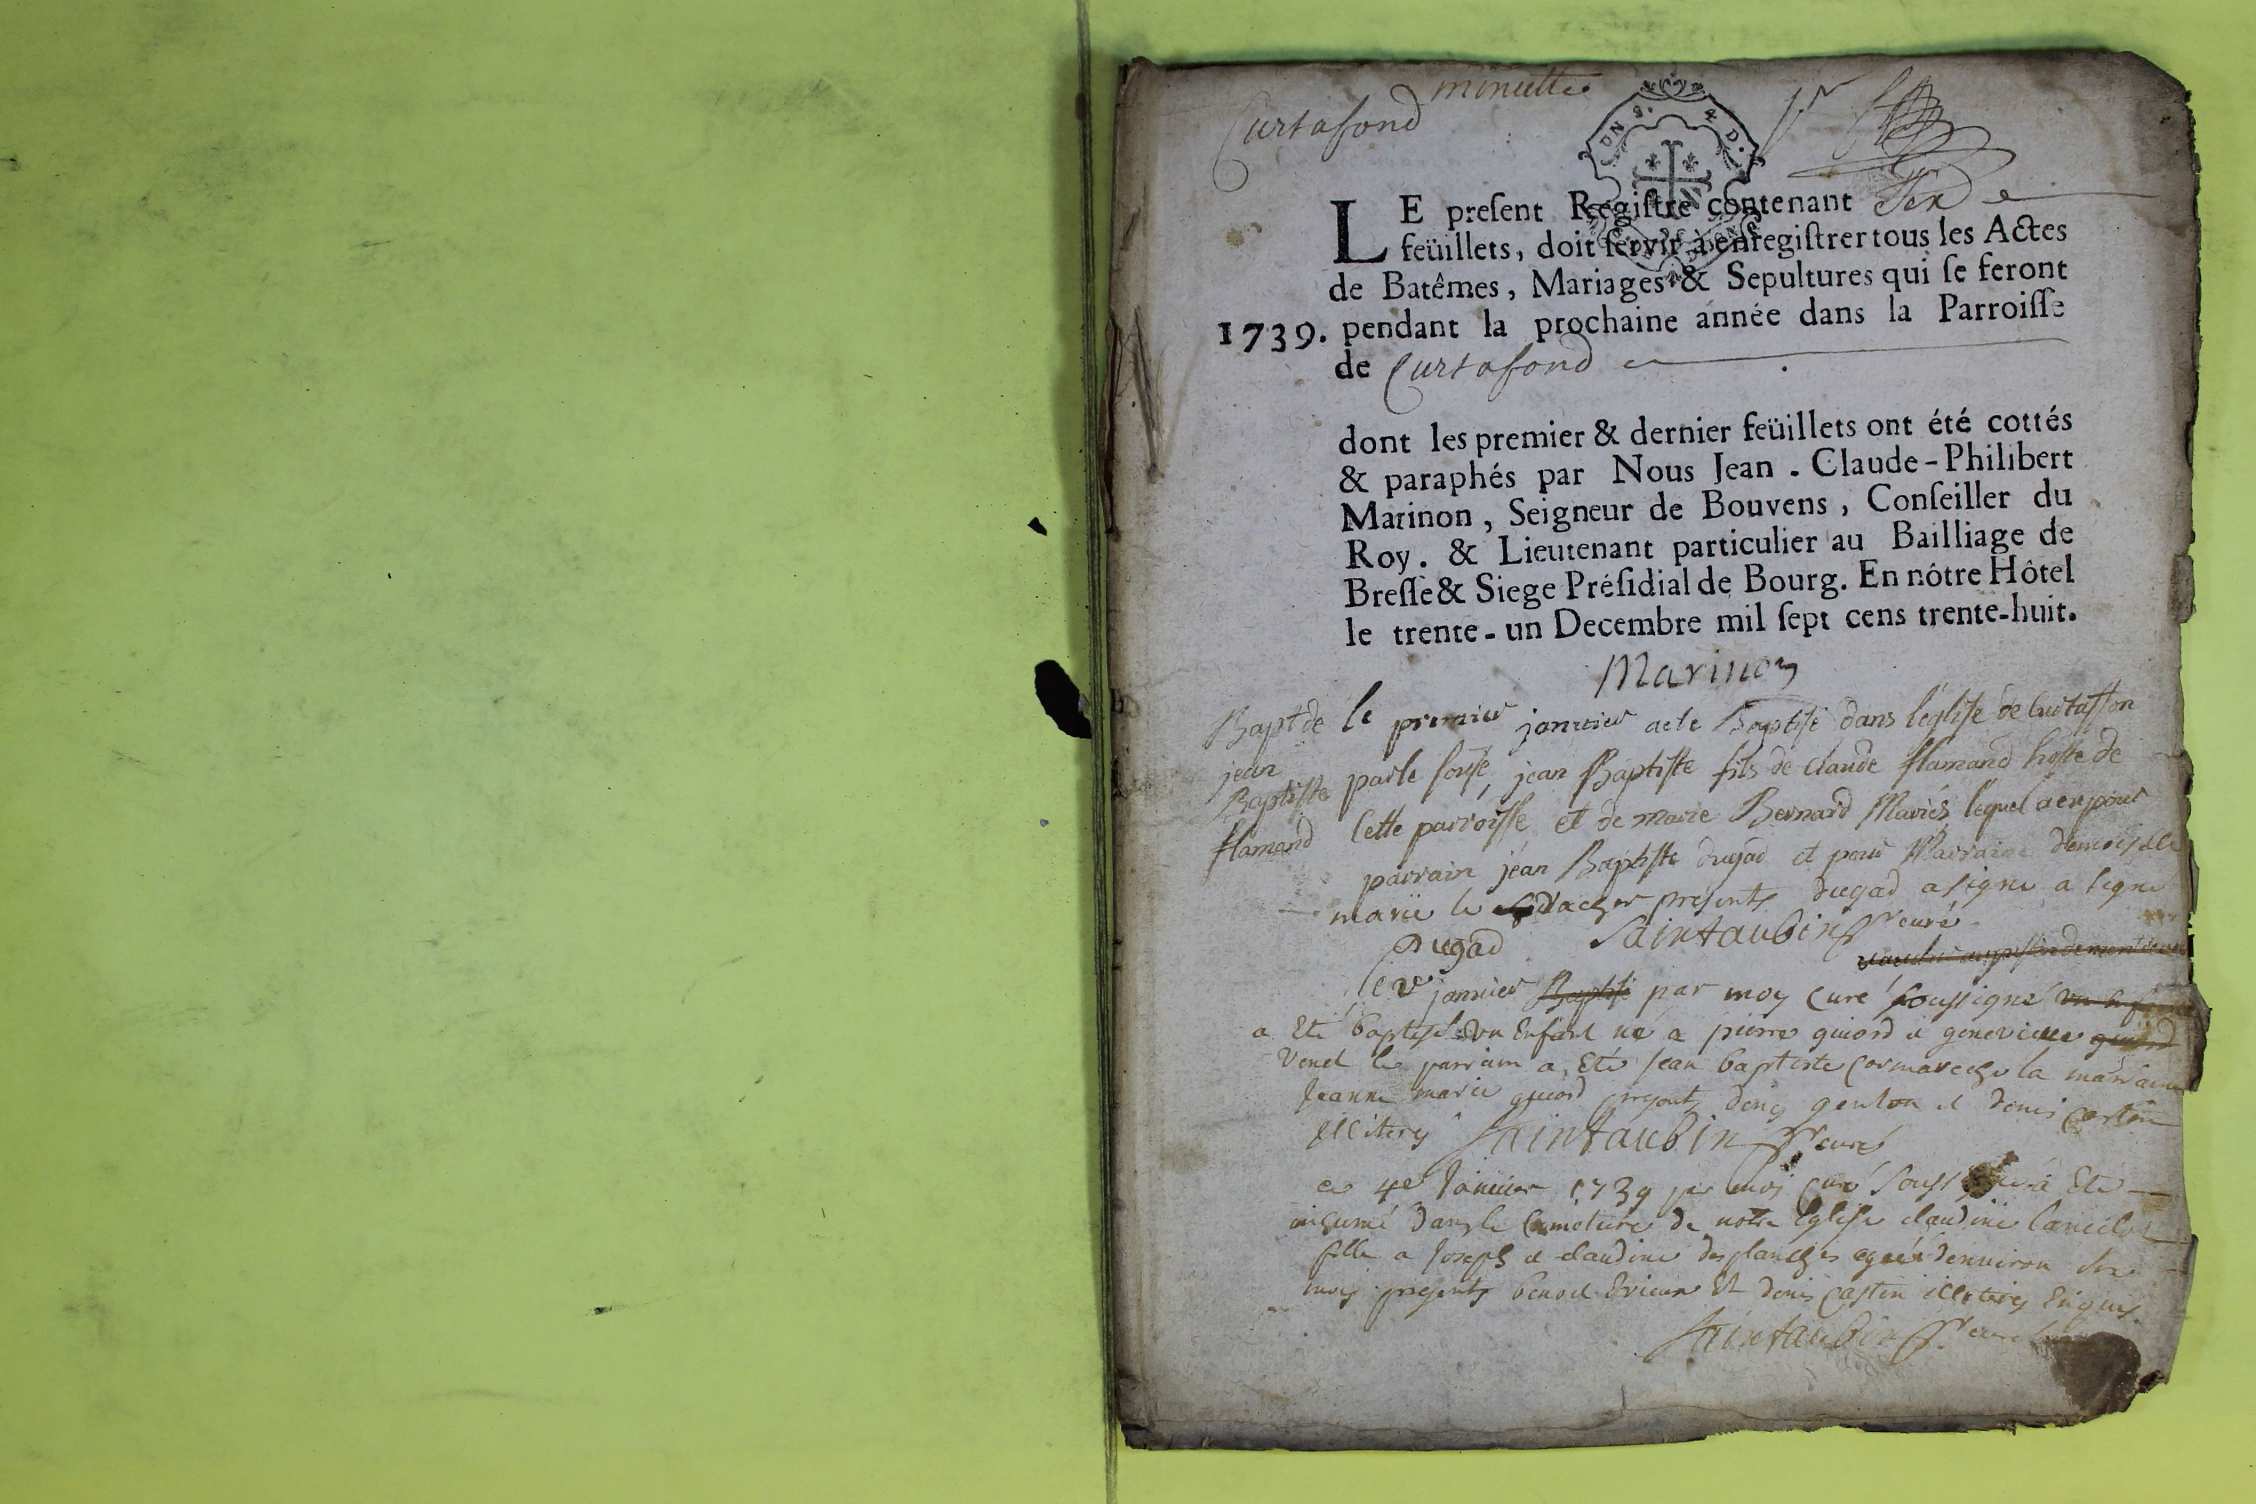 minutte
Curtafond
DN S. 4 D.
LE preſent Regiſtre contenant
feüillets, doit ſervir à enregiſtrer tous les Actes
de Batêmes, Mariages & Sepultures qui ſe feront
1739. pendant la prochaine année dans la Parroiſſe
de Curtafond
dont les premier & dernier feüillets ont été cottés
& paraphés par Nous Jean-Claude-Philibert
Marinon, Seigneur de Bouvens, Conſeiller du
Roy. & Lieutenant particulier au Bailliage de
Breſſe & Siege Préſidial de Bourg. En nôtre Hôtel
le trente-un Decembre mil ſept cens trente-huit.
Marinon
Bapt de jean Baptiste flamand
le premier janvier a ete Baptisé dans l'église de
par le sousé, jean Baptiste fils de claude flamand hoste de
cette parroisse et de marie Bernard Mariés lequel a eu pour
parrain jean Baptiste dugad et pour Marraine demoiselle
marie le presents dugad a signe a signé
Dugad Saintaubin curé
le janvier Baptisé par moy curé soussigné
a Eté baptisé un Enfant né a pierre guiord et genevieve
Venet le parrain a Eté jean baptiste Cormareche la marraine
jeanne marie guiord presents denis et denis
illiterés Saintaubin curé
ce 4e Janvier 1739 par moi curé a Eté
inhumé dans le cimetiere de notre Eglise claudine
fille a Joseph et claudine desplanches agée d'environ
mois presents benoit et denis castin illiterés Enquis
Saintaubin curé